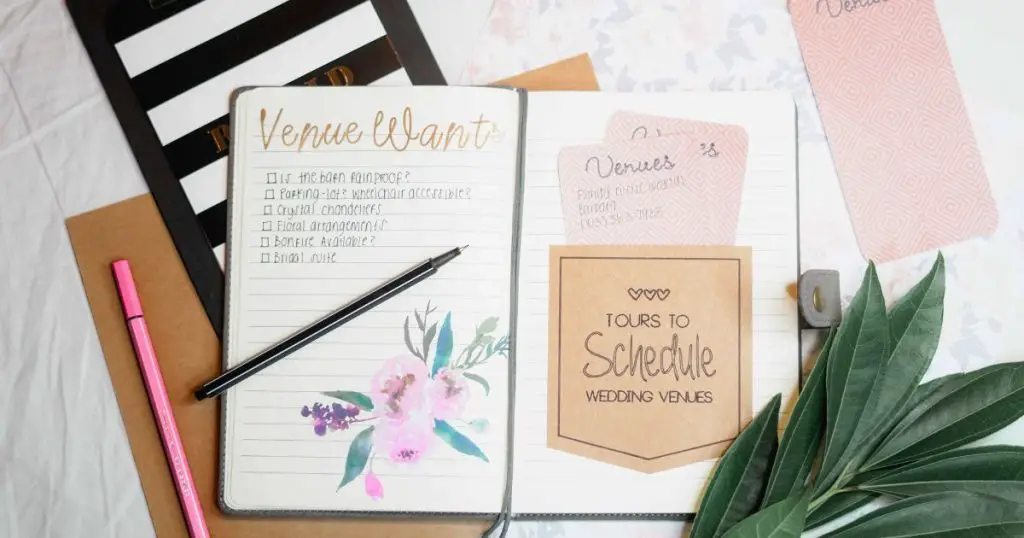 Venue Wants
Is the barn rainproof?
Parking-lot? Wheelchair accessible?
Crystal chandeliers
Floral arrangements
Bonfire Available?
Bridal suite
Venues
Venues
TOURS TO
Schedule
WEDDING VENUES